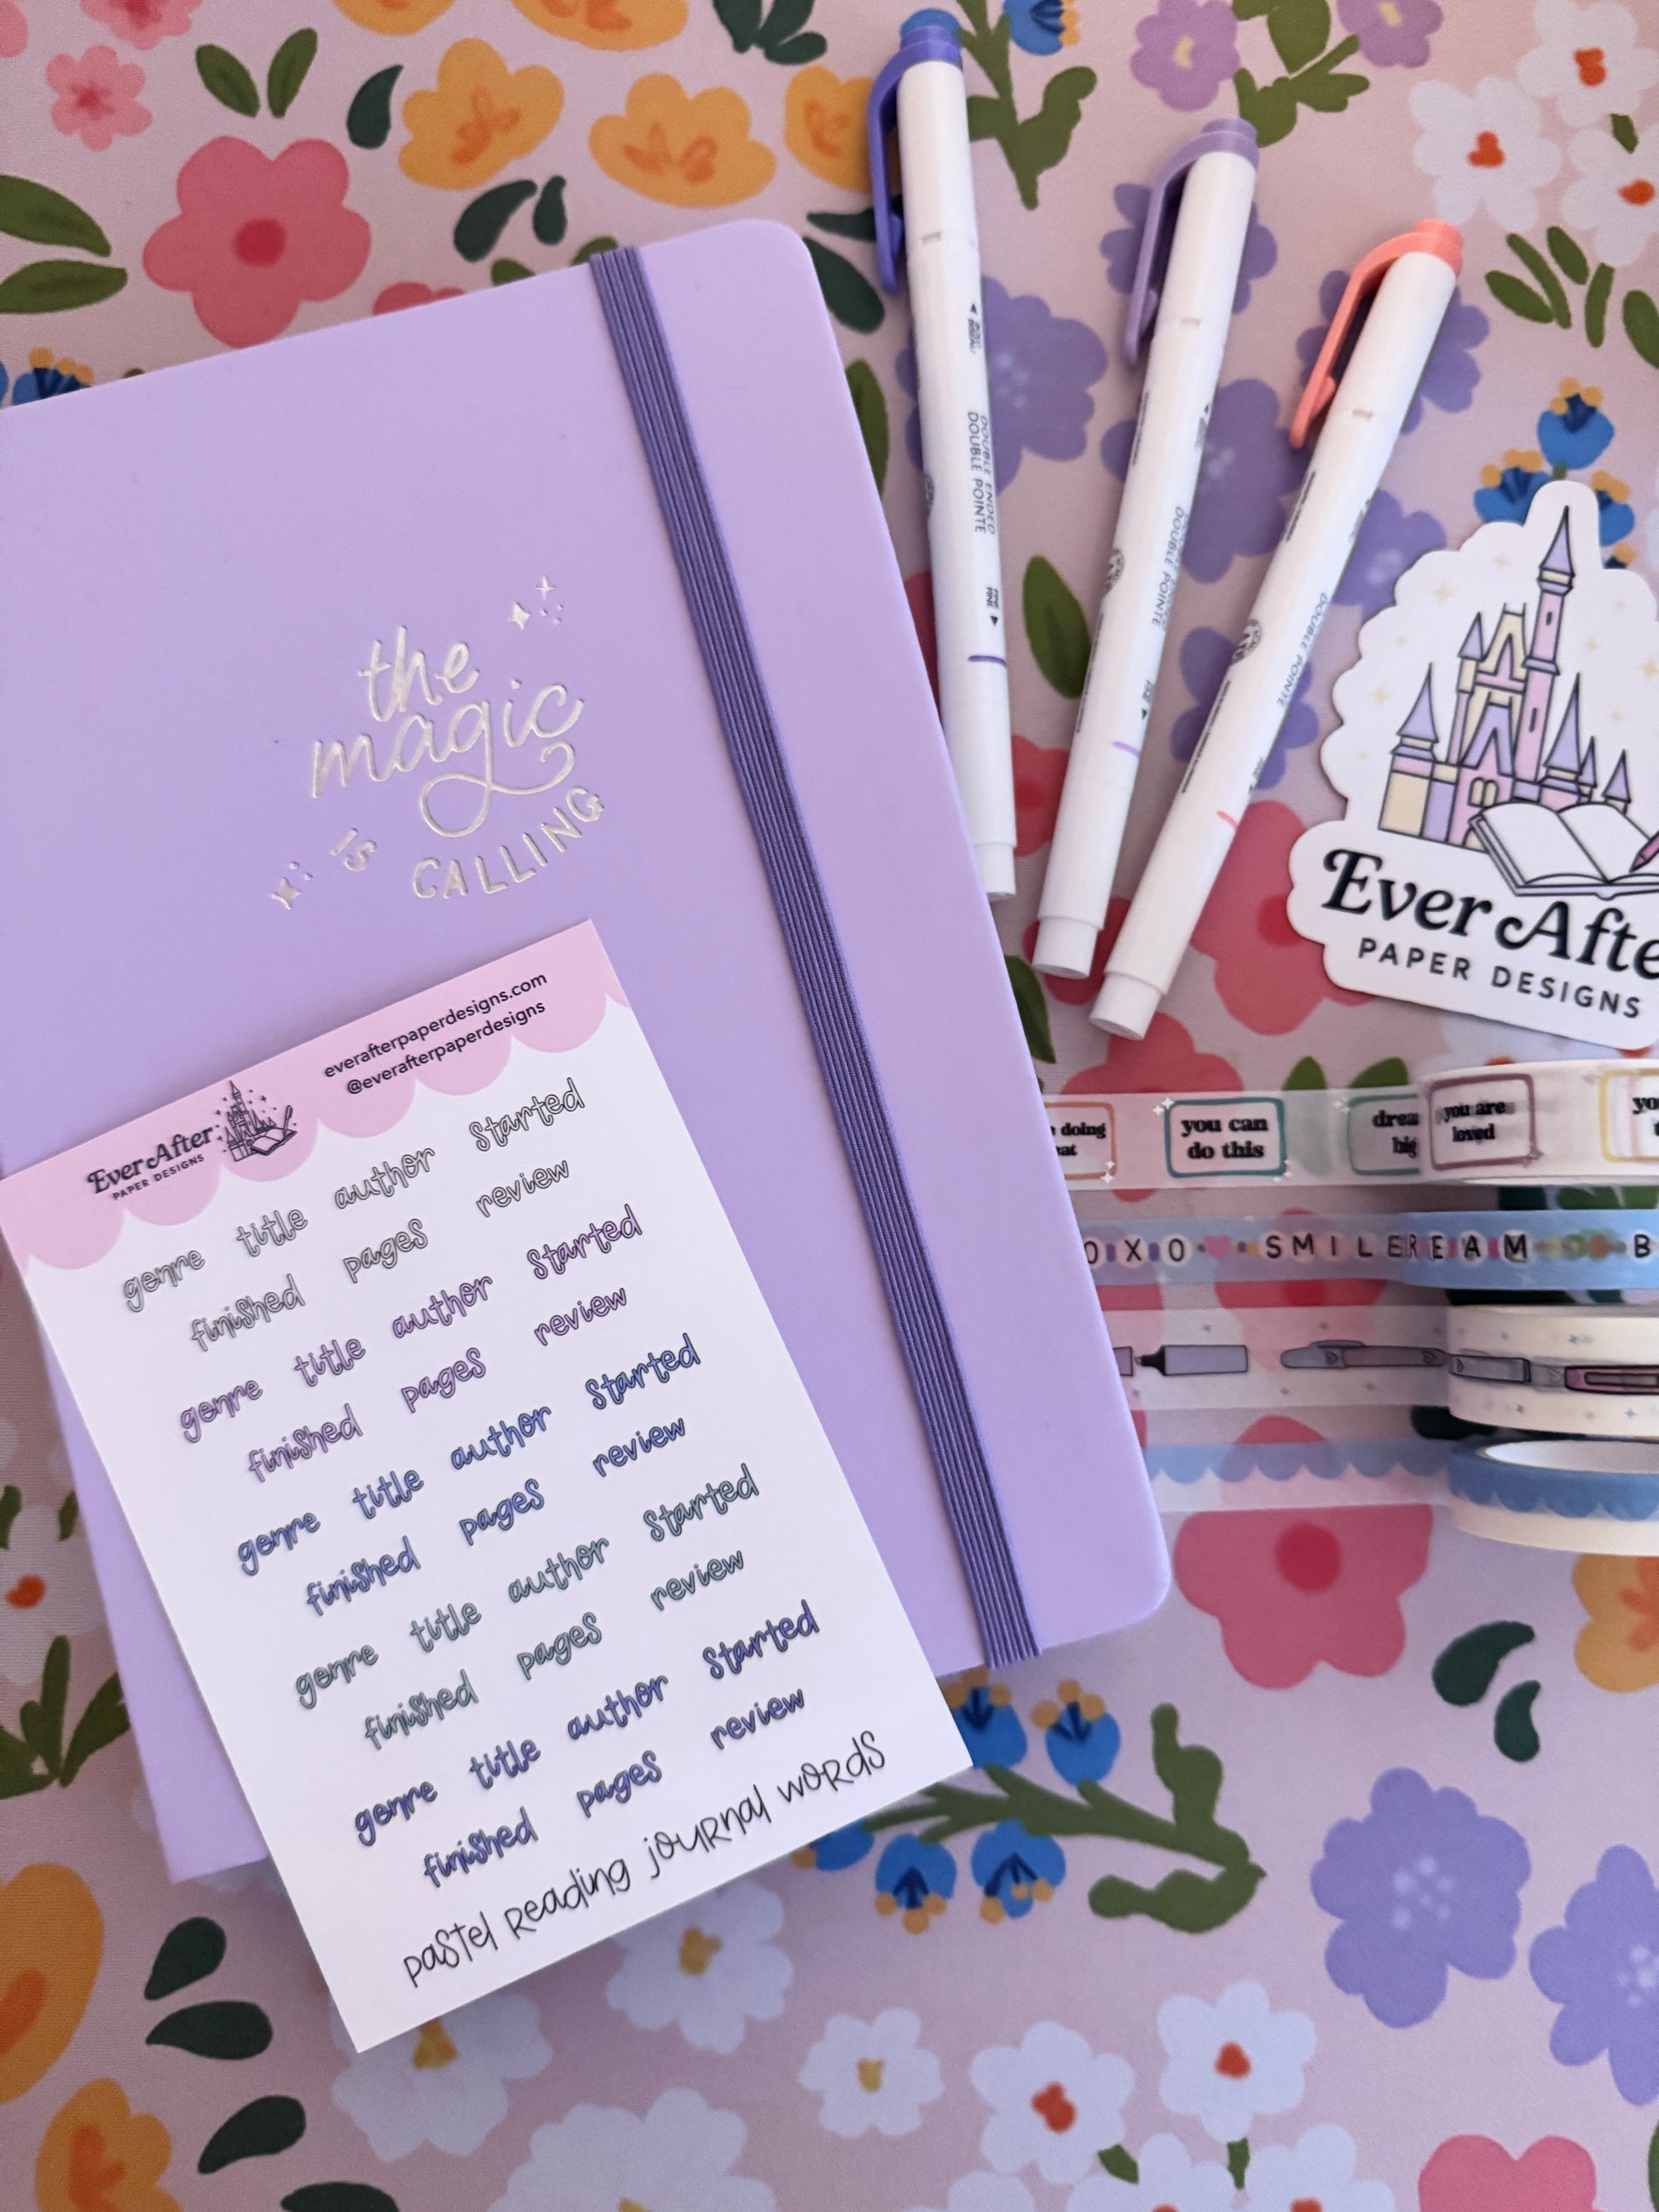 the
magic
IS
CALLING
everafterpaperdesigns.com
@everafterpaperdesigns
Ever After
PAPER DESIGNS
genre title author started
finished pages review
genre title author started
finished pages review
genre title author started
finished pages review
genre title author started
finished pages review
genre title author started
finished pages review
pastel reading journal words
DOUBLE ENDED
DOUBLE POINTE
FINE
DOUBLE POINTE
DOUBLE POINTE
Ever Afte
PAPER DESIGNS
doing
you can
do this
drea
big
you are
loved
yo
OXO SMILE REAM B